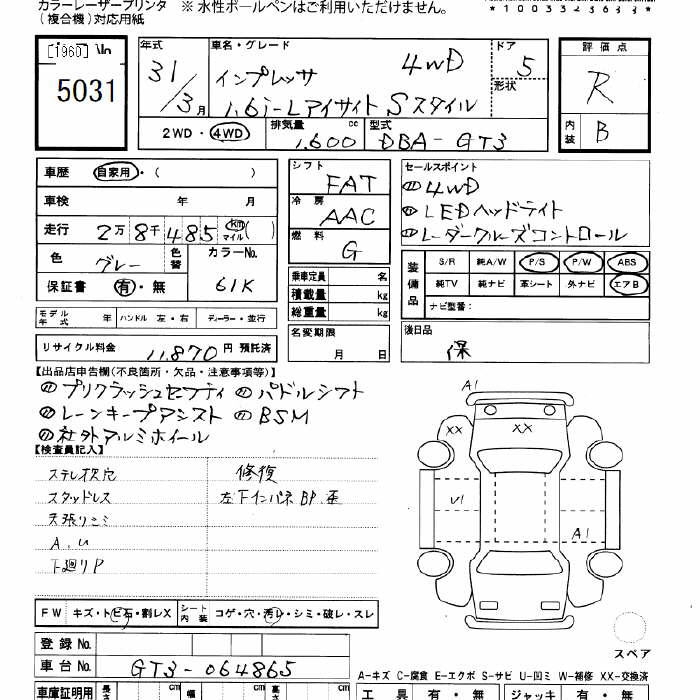 カラーレーザープリンタ ※ 水性ボールペンはご利用いただけません。
(複合機)対応用紙
[1960]
5031
年式 車名・グレード ドア 評価点
31 インプレッサ 4WD 5 R
/3月 1.6i-Lアイサイト Sスタイル 形状
2WD・4WD 排気量 1,600 cc 型式 DBA-GT3 内装 B
車歴 自家用・( ) シフト FAT セールスポイント
車検 年 月 冷房 AAC ① 4WD
走行 2万8千485 km マイル ( ) 燃料 G ② LEDヘッドライト
③ レーダークルーズコントロール
色 グレー 色替 カラーNo. 61K
保証書 有・無
乗車定員 名
積載量 kg
総重量 kg
装備品 S/R 純A/W P/S P/W ABS
純TV 純ナビ 革シート 外ナビ エアB
ナビ型番:
モデル年式 年 ハンドル 左・右 ディーラー・並行
名変期限 月 日
後日品
保
リサイクル料金 11,870 円 預託済
【出品店申告欄(不良箇所・欠品・注意事項等)】
プリクラッシュセフティ パドルシフト
レーンキープアシスト BSM
社外アルミホイール
【検査員記入】
ステレオ欠穴 修復
スタッドレス 左下インパネBP.歪
天張りシミ
A.U
下廻りP
A1
XX XX
U1
A1
スペア
FW キズ・トビ石・割レX シート内装 コゲ・穴・汚レ・シミ・破レ・スレ
登録 No.
車台 No. GT3-064865
A-キズ C-腐食 E-エクボ S-サビ U-凹ミ W-補修 XX-交換済
車庫証明用 長さ cm 幅 cm 高さ cm 工具 有・無 ジャッキ 有・無